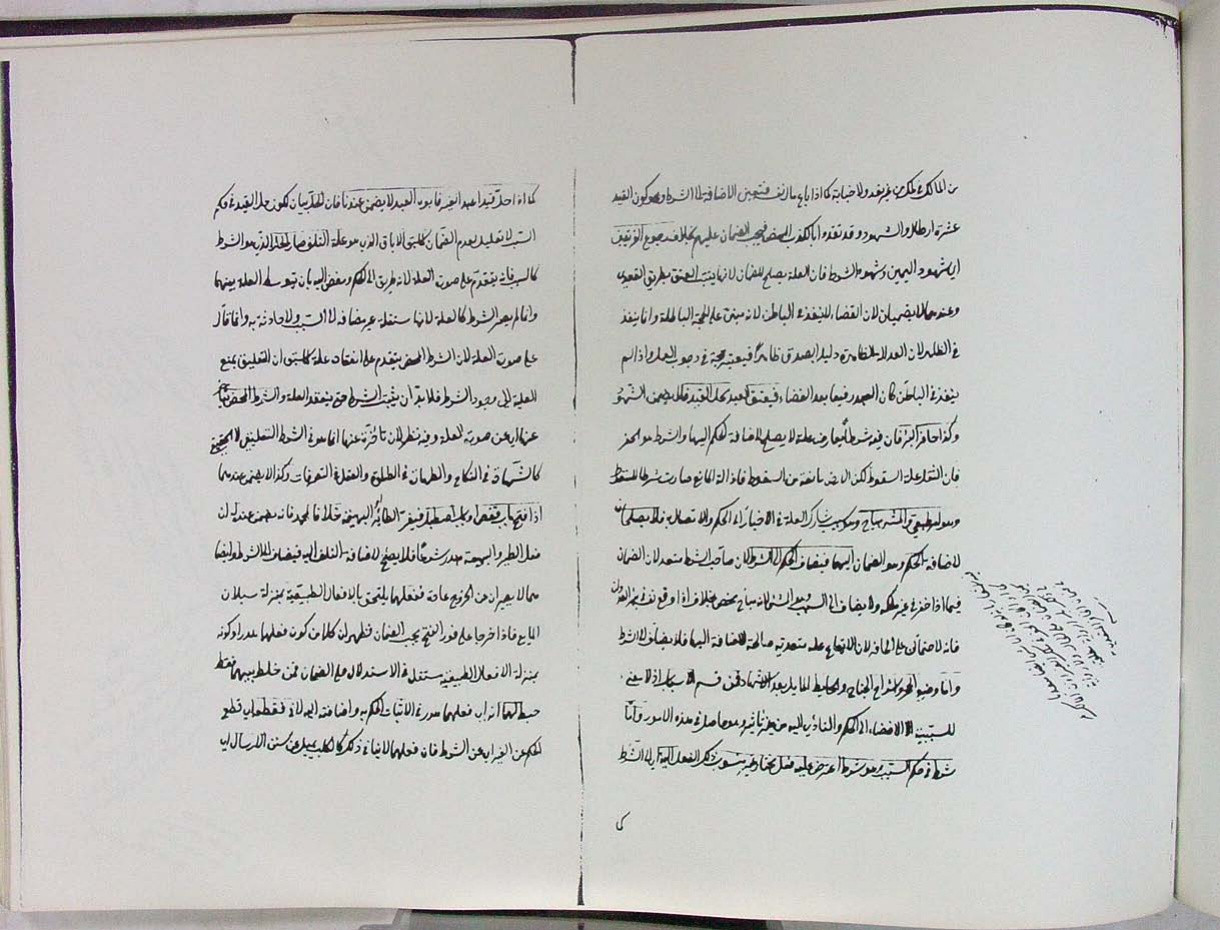 من المالك في ملكه من غير تعد ولا خيانة كما اذا باع مال نفسه فتعين الاضافة الى الشرط وهو كون القيد
عشرة ارطال والشهود وقد تعدوا بالكذب المحض فيجب الضمان عليهم بخلاف رجوع الفريقين
اى شهود اليمين وشهود الشرط فان العلة يصلح للضمان لانها يثبت العتق بطريق التعدى
وعندهما لا يضمنان لان القضاء لا ينفذ فى الباطن لانه مبنى على الحجة الباطلة وانما ينفذ
فى الظاهر لان العدالة الظاهرة دليل الصدق ظاهرا فيعتبر حجة فى وجوب العمل واذا لم
ينفذ فى الباطن كان العبد رقيقا بعد القضاء فيعتق العبد بحل القيد فلا يضمن الشهود
وكذا حافر البئر فان فيه شرطا يعارضه علة لا يصلح لاضافة الحكم اليها والشرط هو الحفر
فان الثقل علة السقوط لكن الارض مانعة من السقوط فازالة المانع صارت شرطا للسقوط
وهو امر طبيعى والمشى مباح وهو سبب يشارك العلة فى الاتصال الى الحكم والاتصال به فلا يصلحان
لاضافة الحكم وهو الضمان اليهما فيضاف الحكم الى الشرط لان صاحب الشرط متعد لان الضمان
فيما اذا حفر فى غير ملكه ولا يضاف الى السبب وهو المشى لانه مباح محض بخلاف اذا اوقع نفسه
فانه لا ضمان على الحافر لان الايقاع علة متعدية صالحة للاضافة اليها فلا يضاف الى الشرط
واما وضع الحجر واشراع الجناح والحائط المائل بعد الاشهاد فمن قسم الاسباب اذ لا معنى
للسببية الا الافضاء الى الحكم والتأدى اليه من غير تأثير وهو حاصل فى هذه الامور واما
شرط فى حكم السبب وهو شرط اعترض عليه فعل مختار غير منسوب ذلك الفعل اليه اى الى الشرط
كما اذا حل قيد عبد الغير فابق العبد لا يضمن عندنا فان الحل بيان لكون حل القيد فى حكم
السبب لا تعليل لعدم الضمان لما سبق الاباق الذى هو علة التلف صار الحل الذى هو الشرط
كالسبب فانه يتقدم على صورة العلة لانه طريق الى الحكم ومفض اليه بان يتوسط العلة بينهما
وانما لم يعتبر الشرط كالعلة لانها مستقلة غير مضافة الى السبب ولا حادثة به وانما قال
على صورة العلة لان الشرط المحض يتقدم على انعقاد علة لما سبق ان التعليق يمنع
العلية الى وجود الشرط فلا بد ان يثبت الشرط حتى ينعقد العلة والشرط المحض يتأخر
عنها اى عن صورة العلة وفيه نظر لان تأخره عنها انما هو فى الشرط التعليقى لا الحقيقى
كالشهادة فى النكاح والطهارة فى الصلوة والعقل فى التصرفات وكذا لا يضمن عندهما
اذا فتح باب قفص او باب اصطبل فيفر الطائر او البهيمة خلافا لمحمد فانه يضمن عنده لان
فعل الطير والبهيمة هدر شرعا فلا يصلح لاضافة التلف اليه فيضاف الى الشرط وايضا
هما لا يصبران عن الخروج عادة ففعلهما يلتحق بالافعال الطبيعية بمنزلة سيلان
المايع فاذا خرجا على فور الفتح يجب الضمان فظهر ان كلا من كون فعلهما هدرا وكونه
بمنزلة الافعال الطبيعية مستقل فى الاستدلال على الضمان فمن خلط بينهما فقط
خبط لهما انه اى فعلهما هدر فى اثبات الحكم به واضافته اليه لا فى قطعه اى قطع
الحكم عن الغير اى عن الشرط فان فعلهما لا ينافى ذلك كالكلب يميل عن سنن الارسال اى